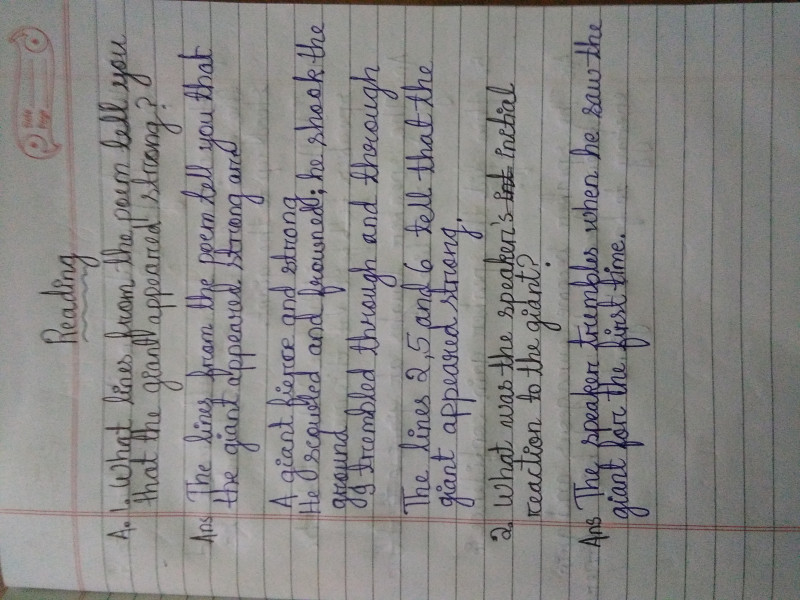 Reading
A. 1. What lines from the poem tell you
that the giant appeared strong?
Ans The lines from the poem tell you that
the giant appeared strong are
A giant fierce and strong
He scowled and frowned; he shook the
ground
I trembled through and through
The lines 2,5 and 6 tell that the
giant appeared strong.
2. What was the speaker's initial
reaction to the giant?
Ans The speaker trembles when he saw the
giant for the first time.